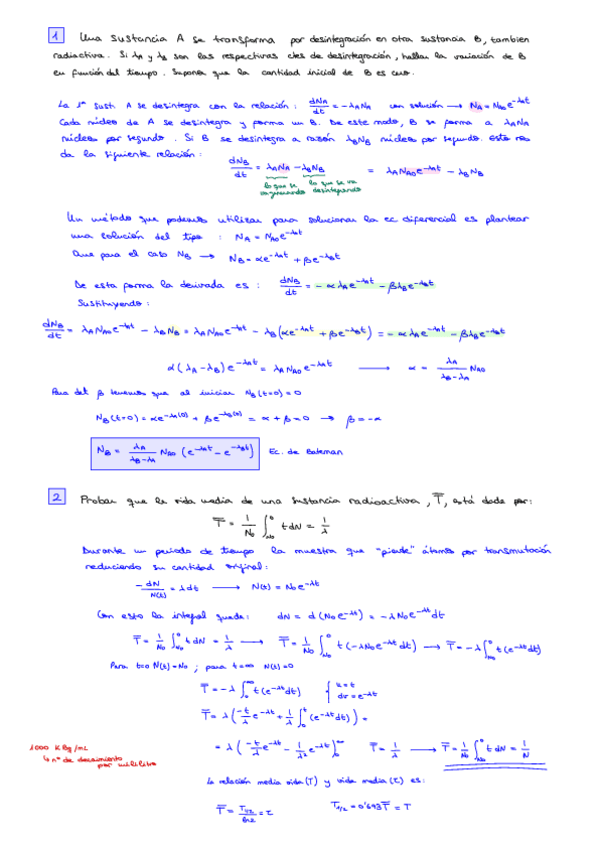 1 Una sustancia A se transforma por desintegración en otra sustancia B, tambien
radiactiva. Si λA y λB son las respectivas ctes de desintegración, hallar la variación de B
en función del tiempo. Suponer que la cantidad inicial de B es cero.
La 1ª sust. A se desintegra con la relación: dNA/dt = -λA NA con solución → NA = NA0 e^-λAt
Cada núcleo de A se desintegra y forma un B. De este modo, B se forma a λANA
núcleos por segundo. Si B se desintegra a razón λBNB núcleos por segundo. Esto nos
da la siguiente relación:
dNB/dt = λANA - λBNB = λANA0 e^-λAt - λBNB
lo que se lo que se va
desintegrando
Un método que podemos utilizar para solucionar la ec diferencial es plantear
una solución del tipo : NA = NA0 e^-λAt
Que para el caso NB → NB = αe^-λAt + βe^-λBt
De esta forma la derivada es : dNB/dt = -αλA e^-λAt - βλB e^-λBt
Sustituyendo:
dNB/dt = λANA0 e^-λAt - λBNB = λANA0 e^-λAt - λB(αe^-λAt + βe^-λBt) = -αλA e^-λAt - βλB e^-λBt
α(λA - λB)e^-λAt = λANA0 e^-λAt → α = λA/(λB-λA) NA0
Para det β tenemos que al iniciar NB(t=0) = 0
NB(t=0) = αe^-λA(0) + βe^-λB(0) = α + β = 0 → β = -α
NB = λA/(λB-λA) NA0 (e^-λAt - e^-λBt) Ec. de Bateman
2 Probar que la vida media de una sustancia radioactiva, T̅, está dada por:
T̅ = 1/N0 ∫_N0^0 t dN = 1/λ
Durante un periodo de tiempo la muestra que "pierde" átomos por transmutación
reduciendo su cantidad original:
-dN/N(t) = λdt → N(t) = N0 e^-λt
Con esto la integral queda: dN = d(N0 e^-λt) = -λN0 e^-λt dt
T̅ = 1/N0 ∫_N0^0 t dN = 1/λ → T̅ = 1/N0 ∫_0^∞ t(-λN0 e^-λt dt) → T̅ = -λ∫_0^∞ t(e^-λt dt)
Para t=0 N(t)=N0 ; para t=∞ N(t)=0
T̅ = -λ ∫_0^∞ t(e^-λt dt) { u = t
dv = e^-λt
T̅ = λ(-t/λ e^-λt + 1/λ ∫_0^t (e^-λt dt)) =
= λ(-t/λ e^-λt - 1/λ² e^-λt)_0^∞ T̅ = 1/λ → T̅ = 1/N0 ∫_N0^0 t dN = 1/λ
1000 KBq/mL
↳ nº de decaimiento
por mililitro
La relación media vida (T) y vida media (τ) es:
T̅ = T1/2/ln2 = τ T1/2 = 0'693T̅ = T